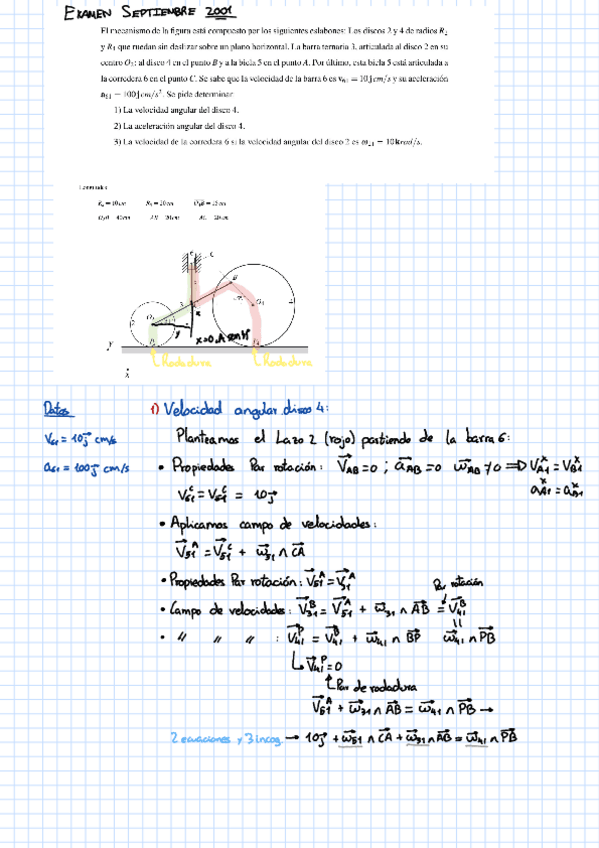 EXAMEN SEPTIEMBRE 2001
El mecanismo de la figura está compuesto por los siguientes eslabones: Los discos 2 y 4 de radios R₂
y R₄ que ruedan sin deslizar sobre un plano horizontal. La barra ternaria 3, articulada al disco 2 en su
centro O₂; al disco 4 en el punto B y a la biela 5 en el punto A. Por último, esta biela 5 está articulada a
la corredera 6 en el punto C. Se sabe que la velocidad de la barra 6 es v₆₁ = 10 j cm/s y su aceleración
a₆₁ = 100 j cm/s². Se pide determinar:
1) La velocidad angular del disco 4.
2) La aceleración angular del disco 4.
3) La velocidad de la corredera 6 si la velocidad angular del disco 2 es ω₂₁ = 10 k rad/s.
C
B
3
O₂
O₄
2
4
x
y
x=O₂A senψ
Rodadura
Rodadura
y
x
Datos
V₆₁ = 10j cm/s
a₆₁ = 100j cm/s
1) Velocidad angular disco 4:
Planteamos el Lazo 2 (rojo) partiendo de la barra 6:
• Propiedades Par rotación: V_AB=0 ; a_AB=0 ω_AB≠0 ⇒ V_A1^x = V_B1^x
a_A1^x = a_B1^x
V_51^C = V_61^C = 10j
• Aplicamos campo de velocidades:
V_51^A = V_51^C + ω_51 ∧ CA
• Propiedades Par rotación: V_51^A = V_31^A
Par rotación
• Campo de velocidades: V_31^B = V_51^A + ω_31 ∧ AB = V_41^B
• // // // : V_41^P = V_41^B + ω_41 ∧ BP ω_41 ∧ PB
V_41^P = 0
Par de rodadura
V_51^A + ω_31 ∧ AB = ω_41 ∧ PB →
2 ecuaciones y 3 incog. → 10j + ω_51 ∧ CA + ω_31 ∧ AB = ω_41 ∧ PB